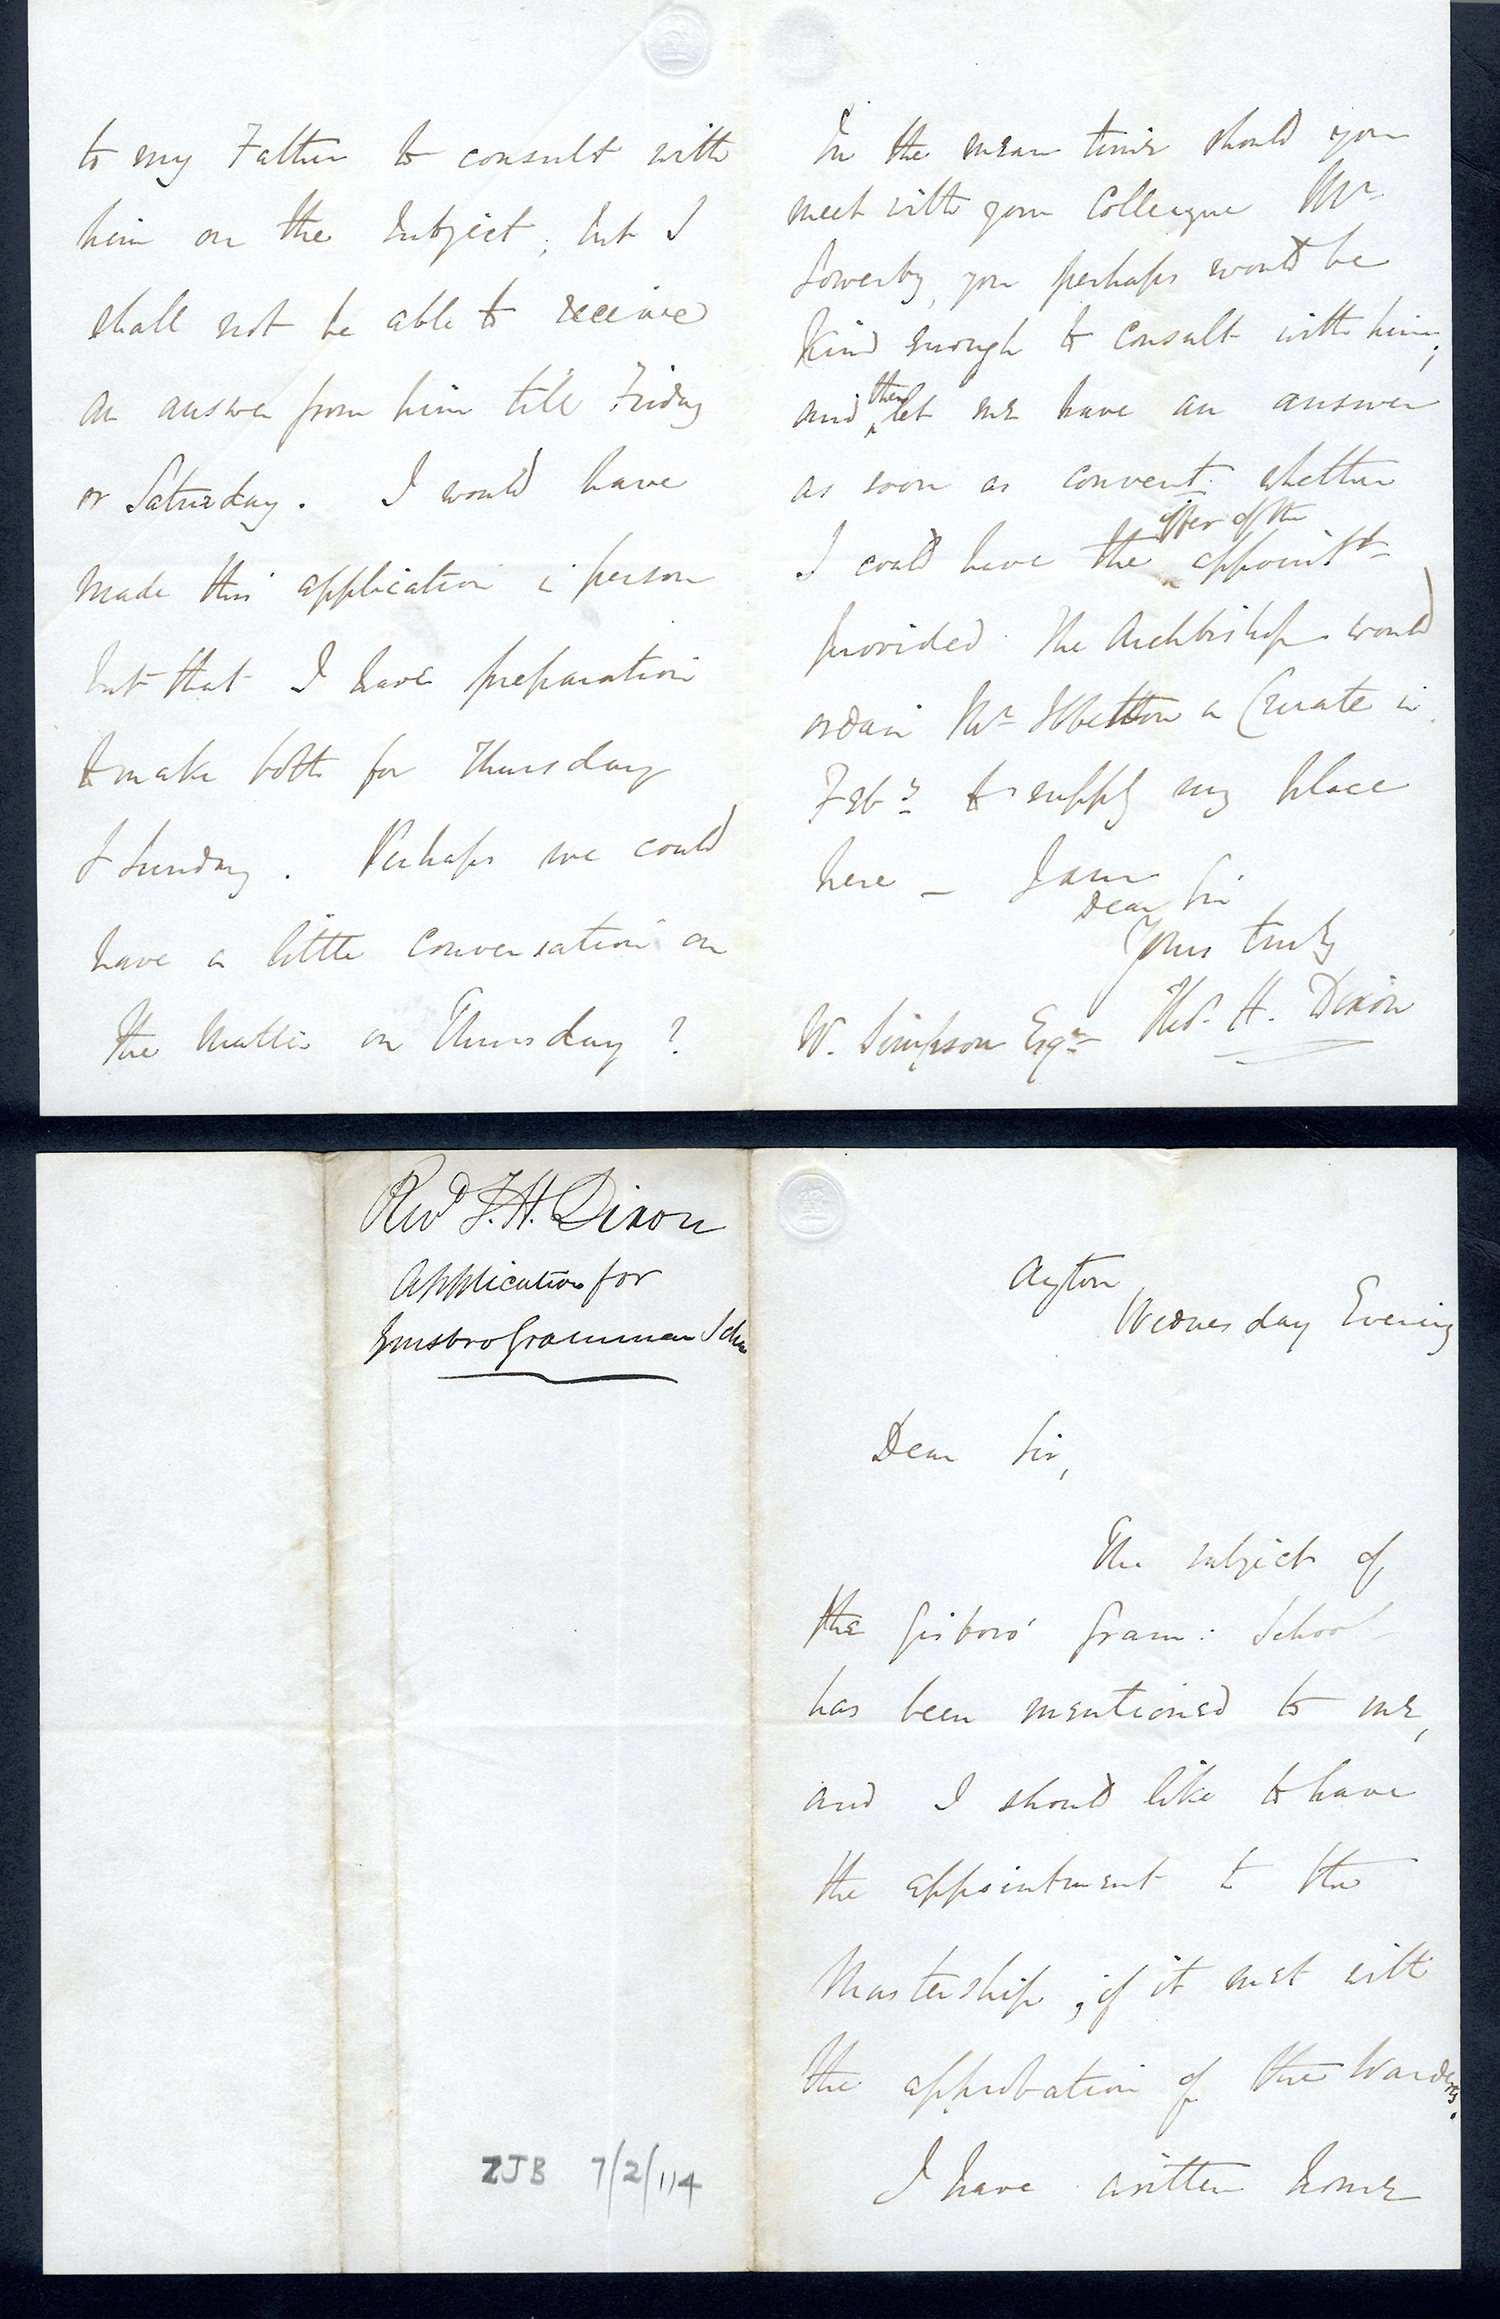 to my Father to consult with
him on the subject; but I
shall not be able to receive
an answer from him till Friday
or Saturday. I would have
made this application in person
but that I have preparation
to make both for Thursday
& Sunday. Perhaps we could
have a little conversation on
the matter on Thursday?
In the mean time should you
meet with your Colleague Mr
Sowerby, you perhaps would be
kind enough to consult with him,
and then let me have an answer
as soon as convent: whether
I could have the offer of the appointt
provided the Archbishop would
ordain Mr Ibbetson a Curate in
Feby to supply my place
here — I am
Dear Sir
Yours truly
W. Simpson Esqr Thos. H. Dixon
Revd T. H. Dixon
Application for
Gusbro Grammar Schoo
ZJB 7/2/114
Ayton,
Wednesday Evening
Dear Sir,
The subject of
the Gisboro' Gram: School
has been mentioned to me,
and I should like to have
the appointment to the
Mastership, if it met with
the approbation of the Wardens.
I have written home